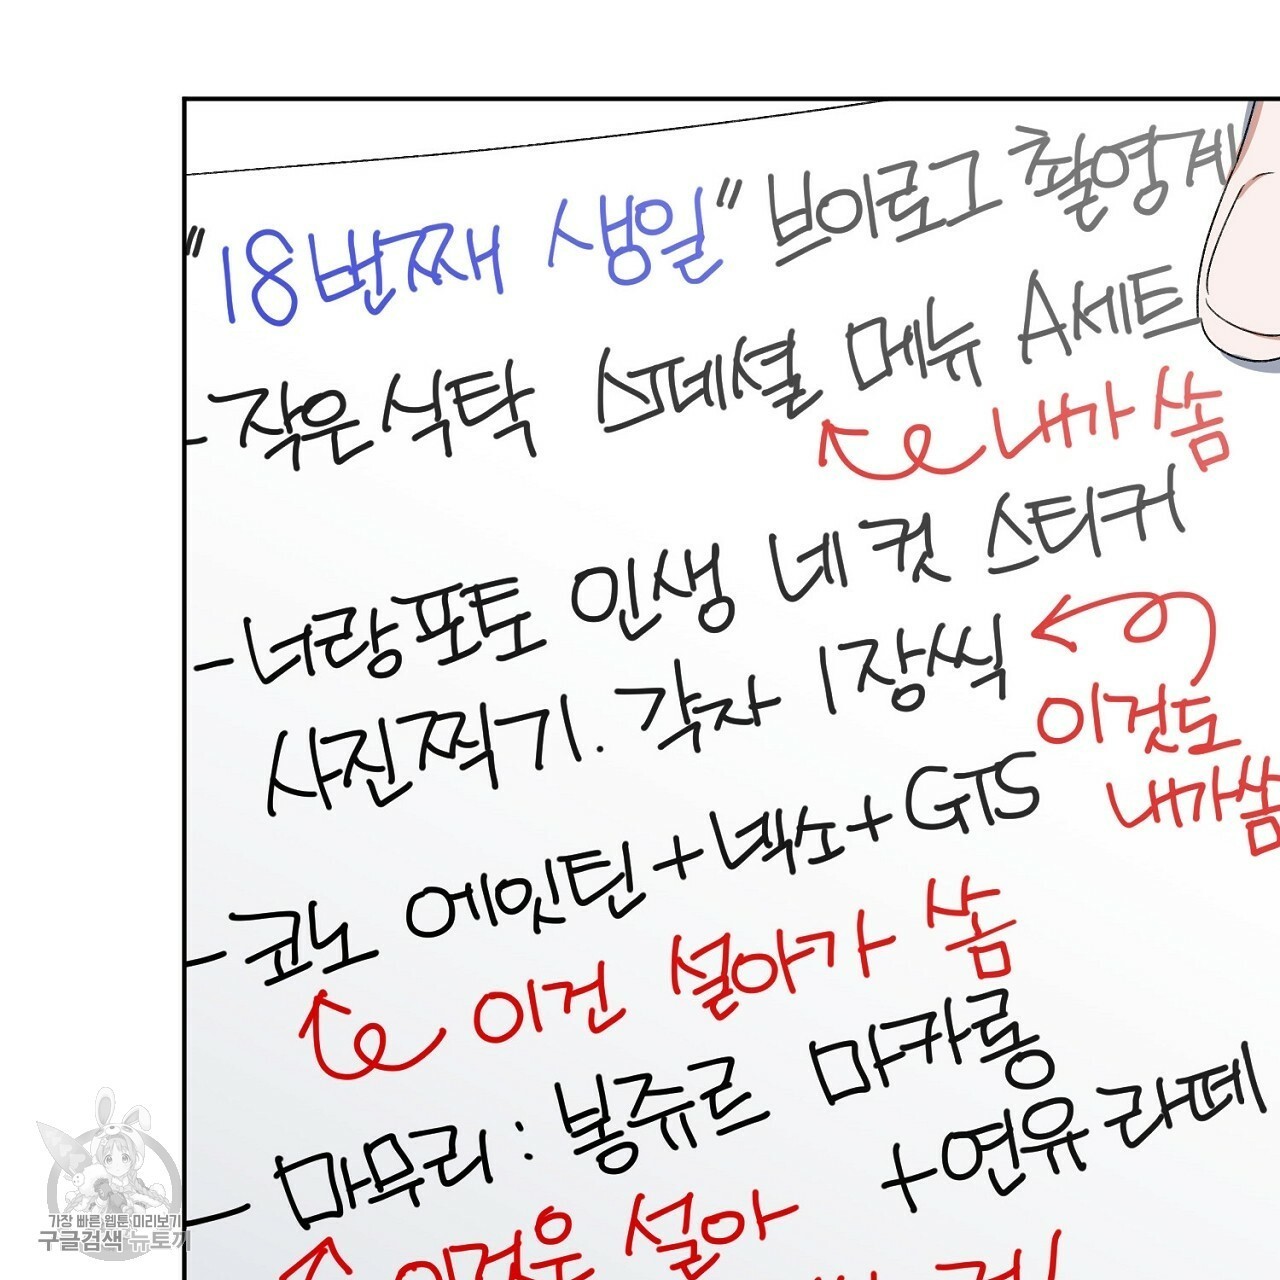 "18번째 생일" 브이로그 촬영계
- 작은식탁 스페셜 메뉴 A세트
내가 쏨
- 너랑포토 인생 네컷 스티커
사진찍기. 각자 1장씩
이것도
내가쏨
- 코노 에잇틴+넥쏘+GTS
이건 설아가 쏨
- 마무리 : 봉쥬르 마카롱
+연유라떼
이것은 설아
가장 빠른 웹툰 미리보기
구글검색 뉴토끼